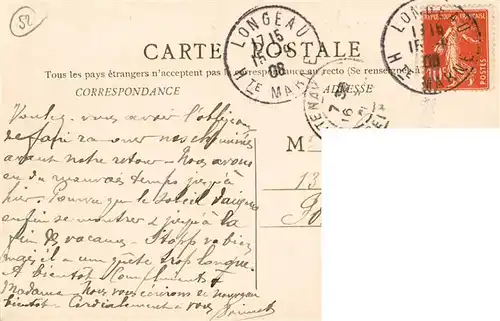 52
CARTE POSTALE
Tous les pays étrangers n'acceptent pas la correspondance au recto (Se renseigner à la
CORRESPONDANCE
ADRESSE
LONGEAU
17 15
15
08
Hte MARNE
LONGEAU
08
Hte MARNE
M
13
Voulez vous avoir l'obligeance
de faire ramoner nos cheminées
avant notre retour - Nous avons
eu du mauvais temps jusqu'à
hier. Pourvu que le soleil daigne
enfin se montrer jusqu'à la
fin des vacances - Stopp va bien
mais il a une quête trop longue.
A bientôt - Compliments à
Madame - Nous vous écrirons de nouveau
bientôt - Cordialement à vous